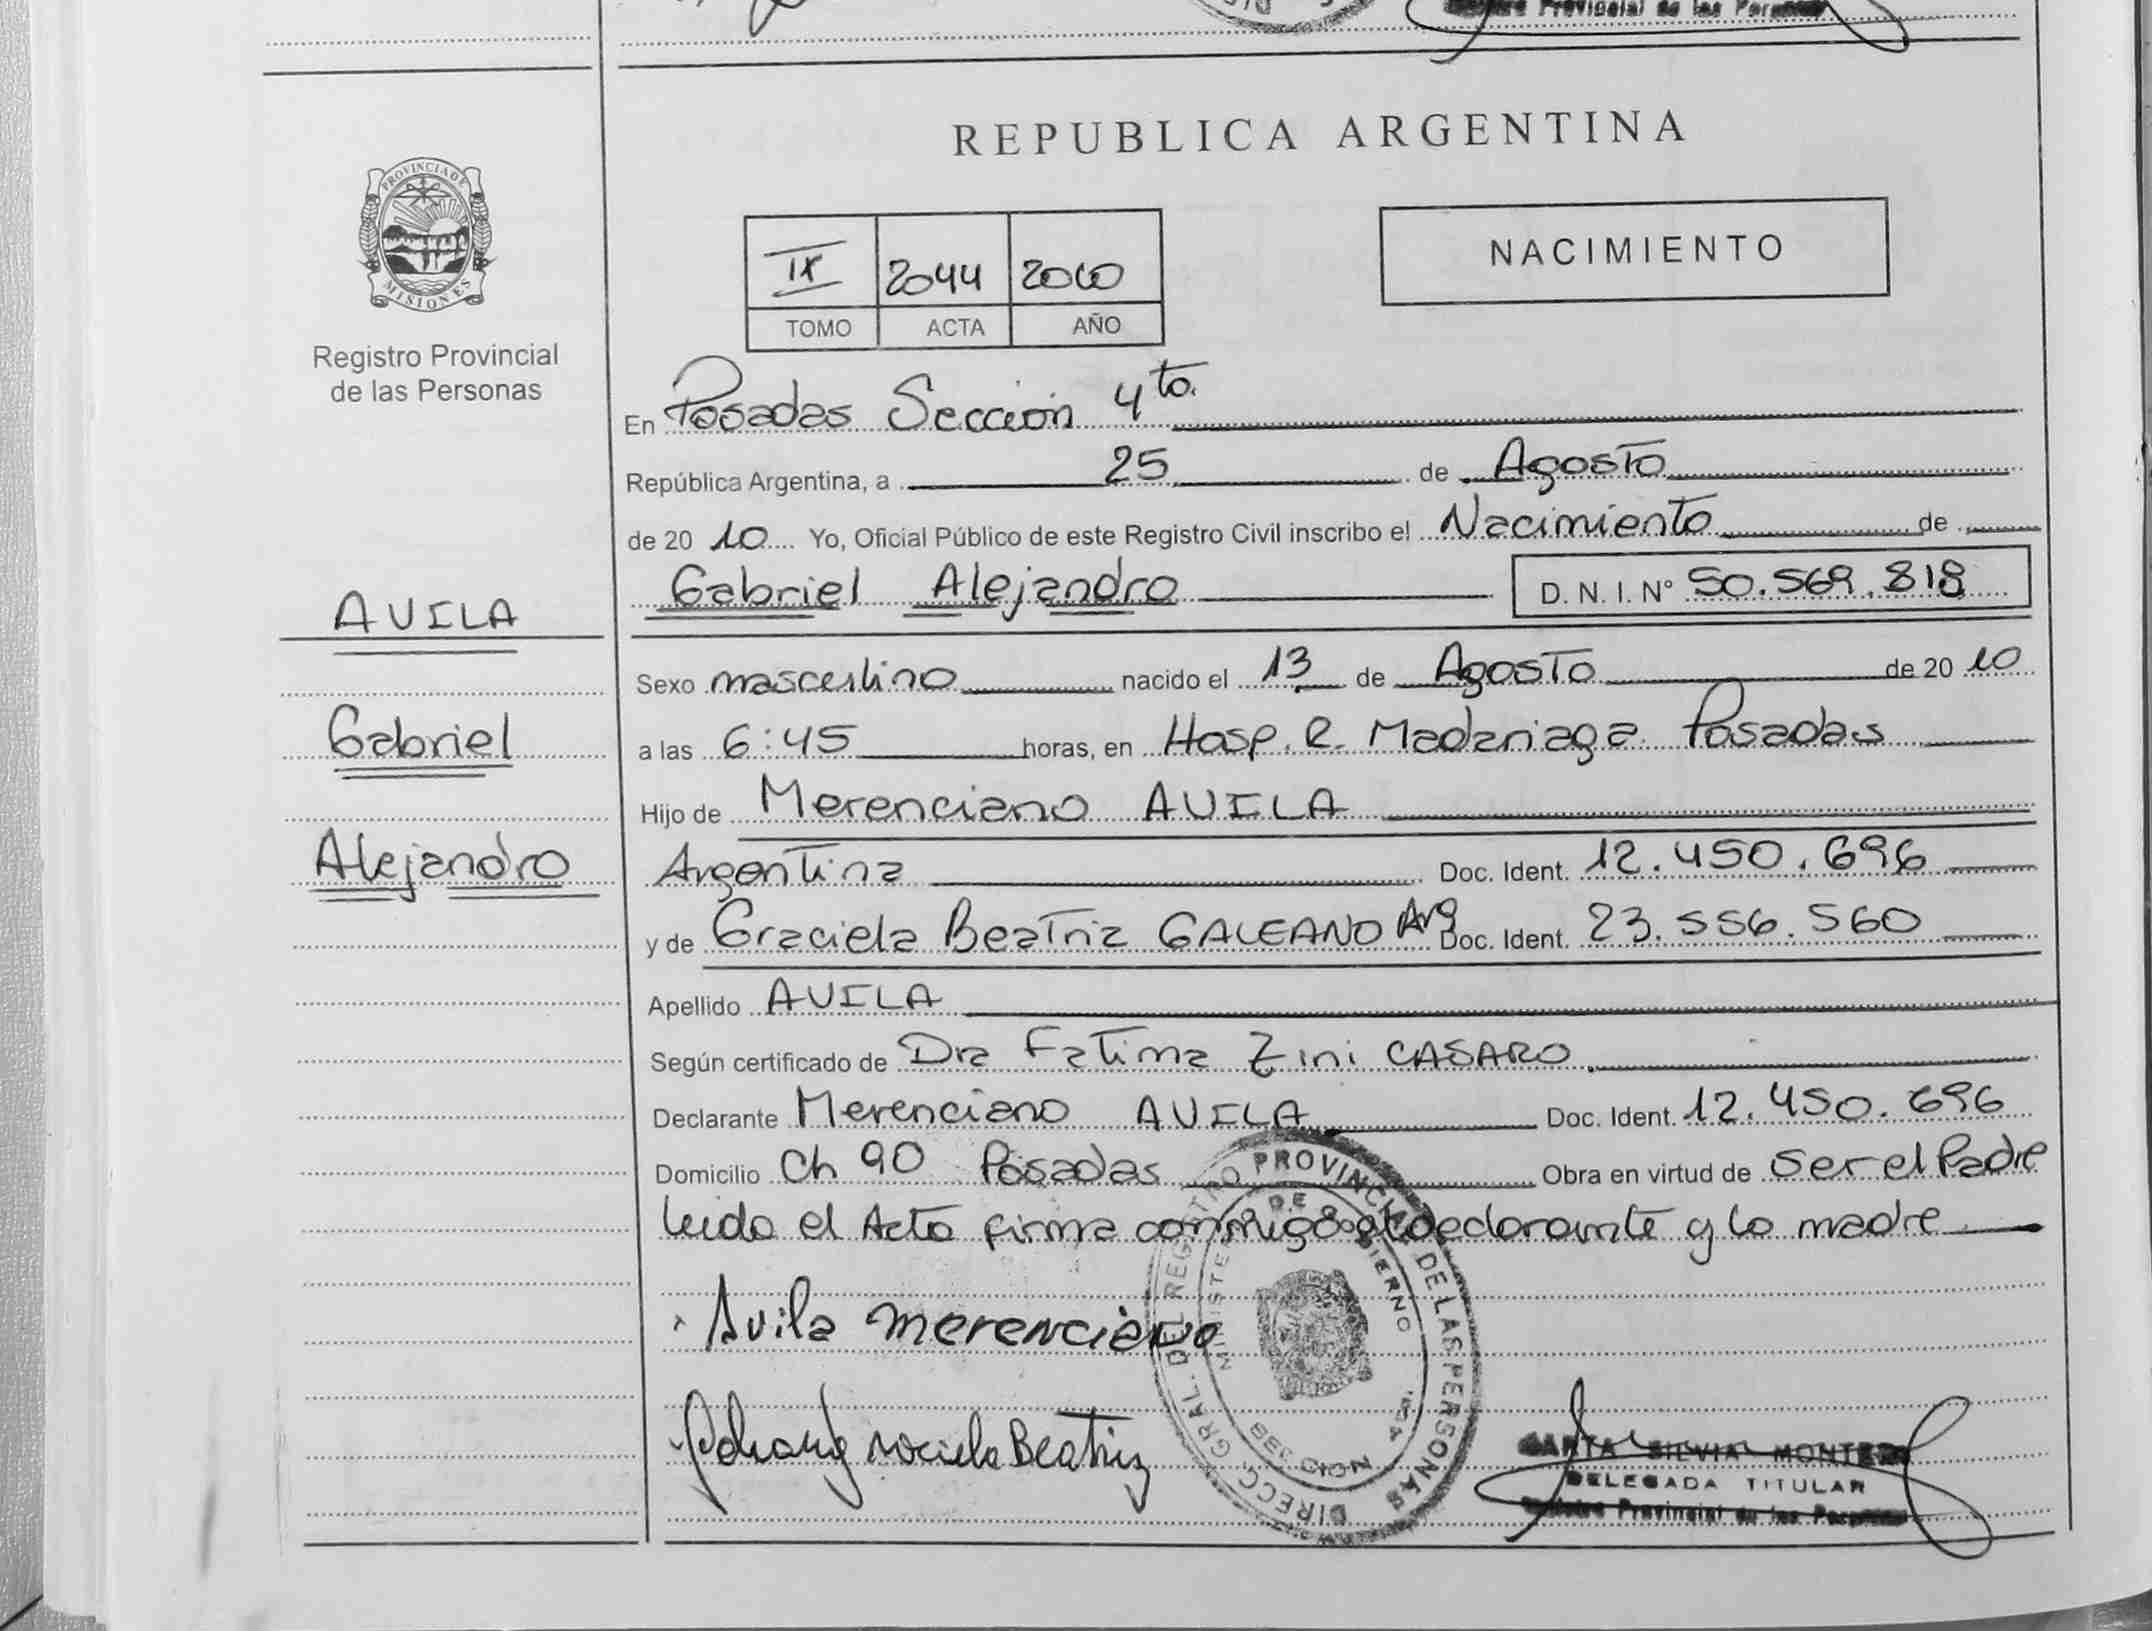 Provincial de las Personas
REPUBLICA ARGENTINA
PROVINCIA DE
MISIONES
Registro Provincial
de las Personas
IX 2044 2010
TOMO ACTA AÑO
NACIMIENTO
En Posadas Sección 4ta.
República Argentina, a 25 de Agosto
de 20 10 Yo, Oficial Público de este Registro Civil inscribo el Nacimiento de
Gabriel Alejandro D. N. I. Nº 50.569.818
AVILA
Gabriel
Alejandro
Sexo masculino nacido el 13 de Agosto de 20 10
a las 6:45 horas, en Hosp. R. Madariaga Posadas
Hijo de Merenciano AVILA
Argentina Doc. Ident. 12.450.696
y de Graciela Beatriz GALEANO Arg Doc. Ident. 23.556.560
Apellido AVILA
Según certificado de Dra Fatima Zini CASARO
Declarante Merenciano AVILA Doc. Ident. 12.450.696
Domicilio Ch 90 Posadas Obra en virtud de Ser el Padre
leida el Acta firma conmigo el declarante y la madre
Avila merenciano
Beatriz
DIRECC. GRAL. DEL REGISTRO PROVINCIAL DE LAS PERSONAS
MINISTERIO DE GOBIERNO
SILVIA MONTERO
DELEGADA TITULAR
Provincial de las Personas